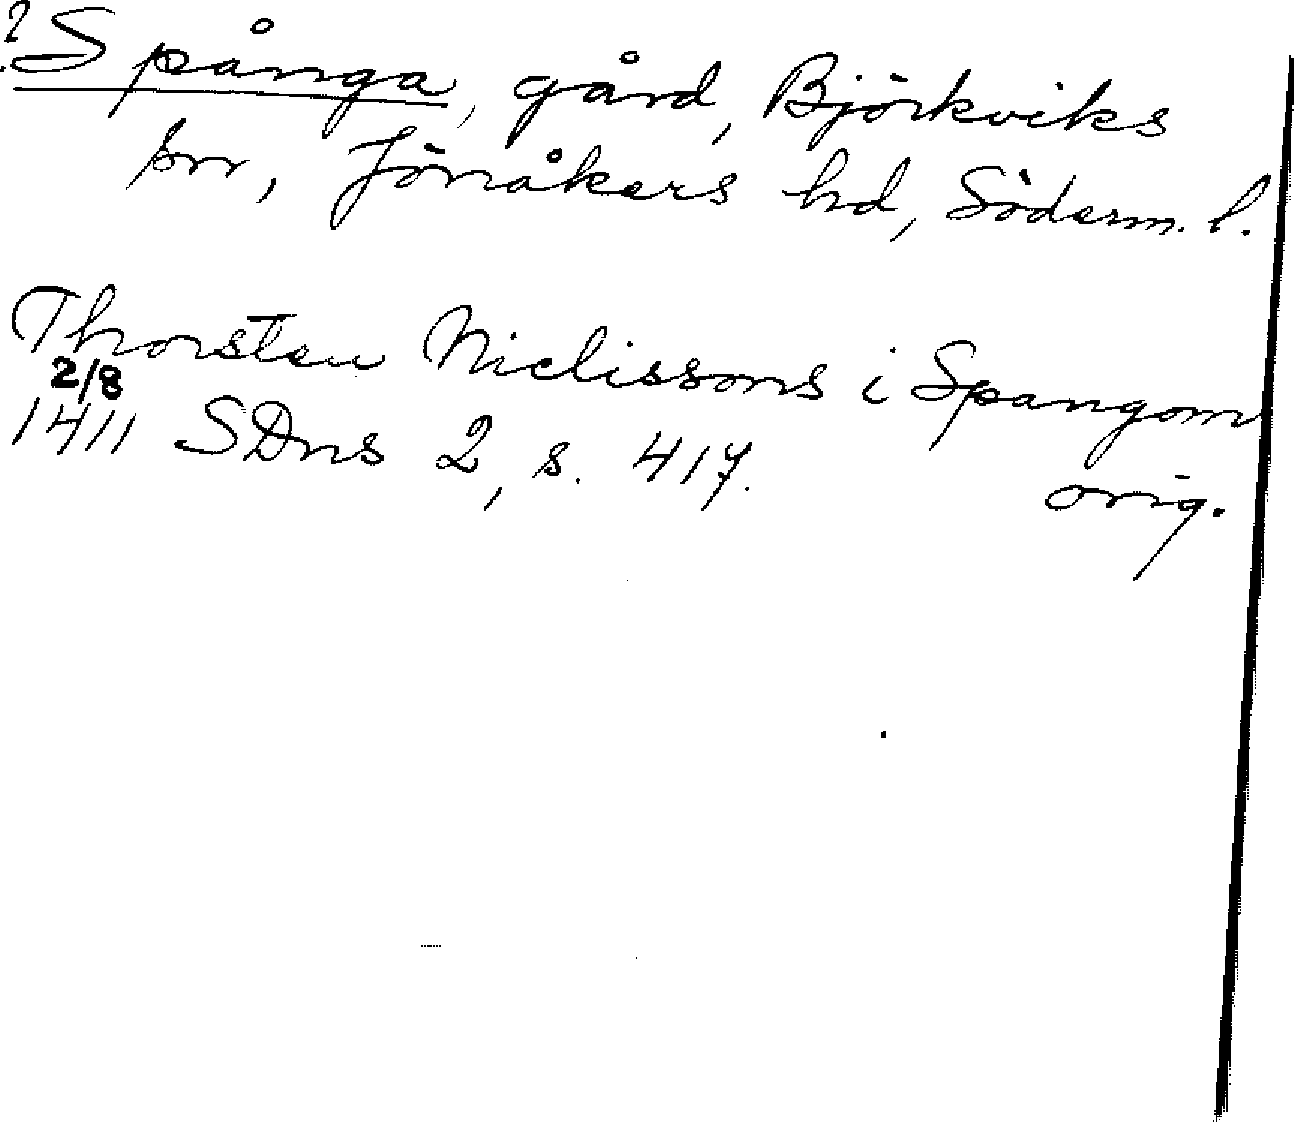 ? Spånga, gård, Björkviks
sn, Jönåkers hd, Söderm. l.
Thorsten Niclissons i Spangom
2/8
1411 SDns 2, s. 417. orig.